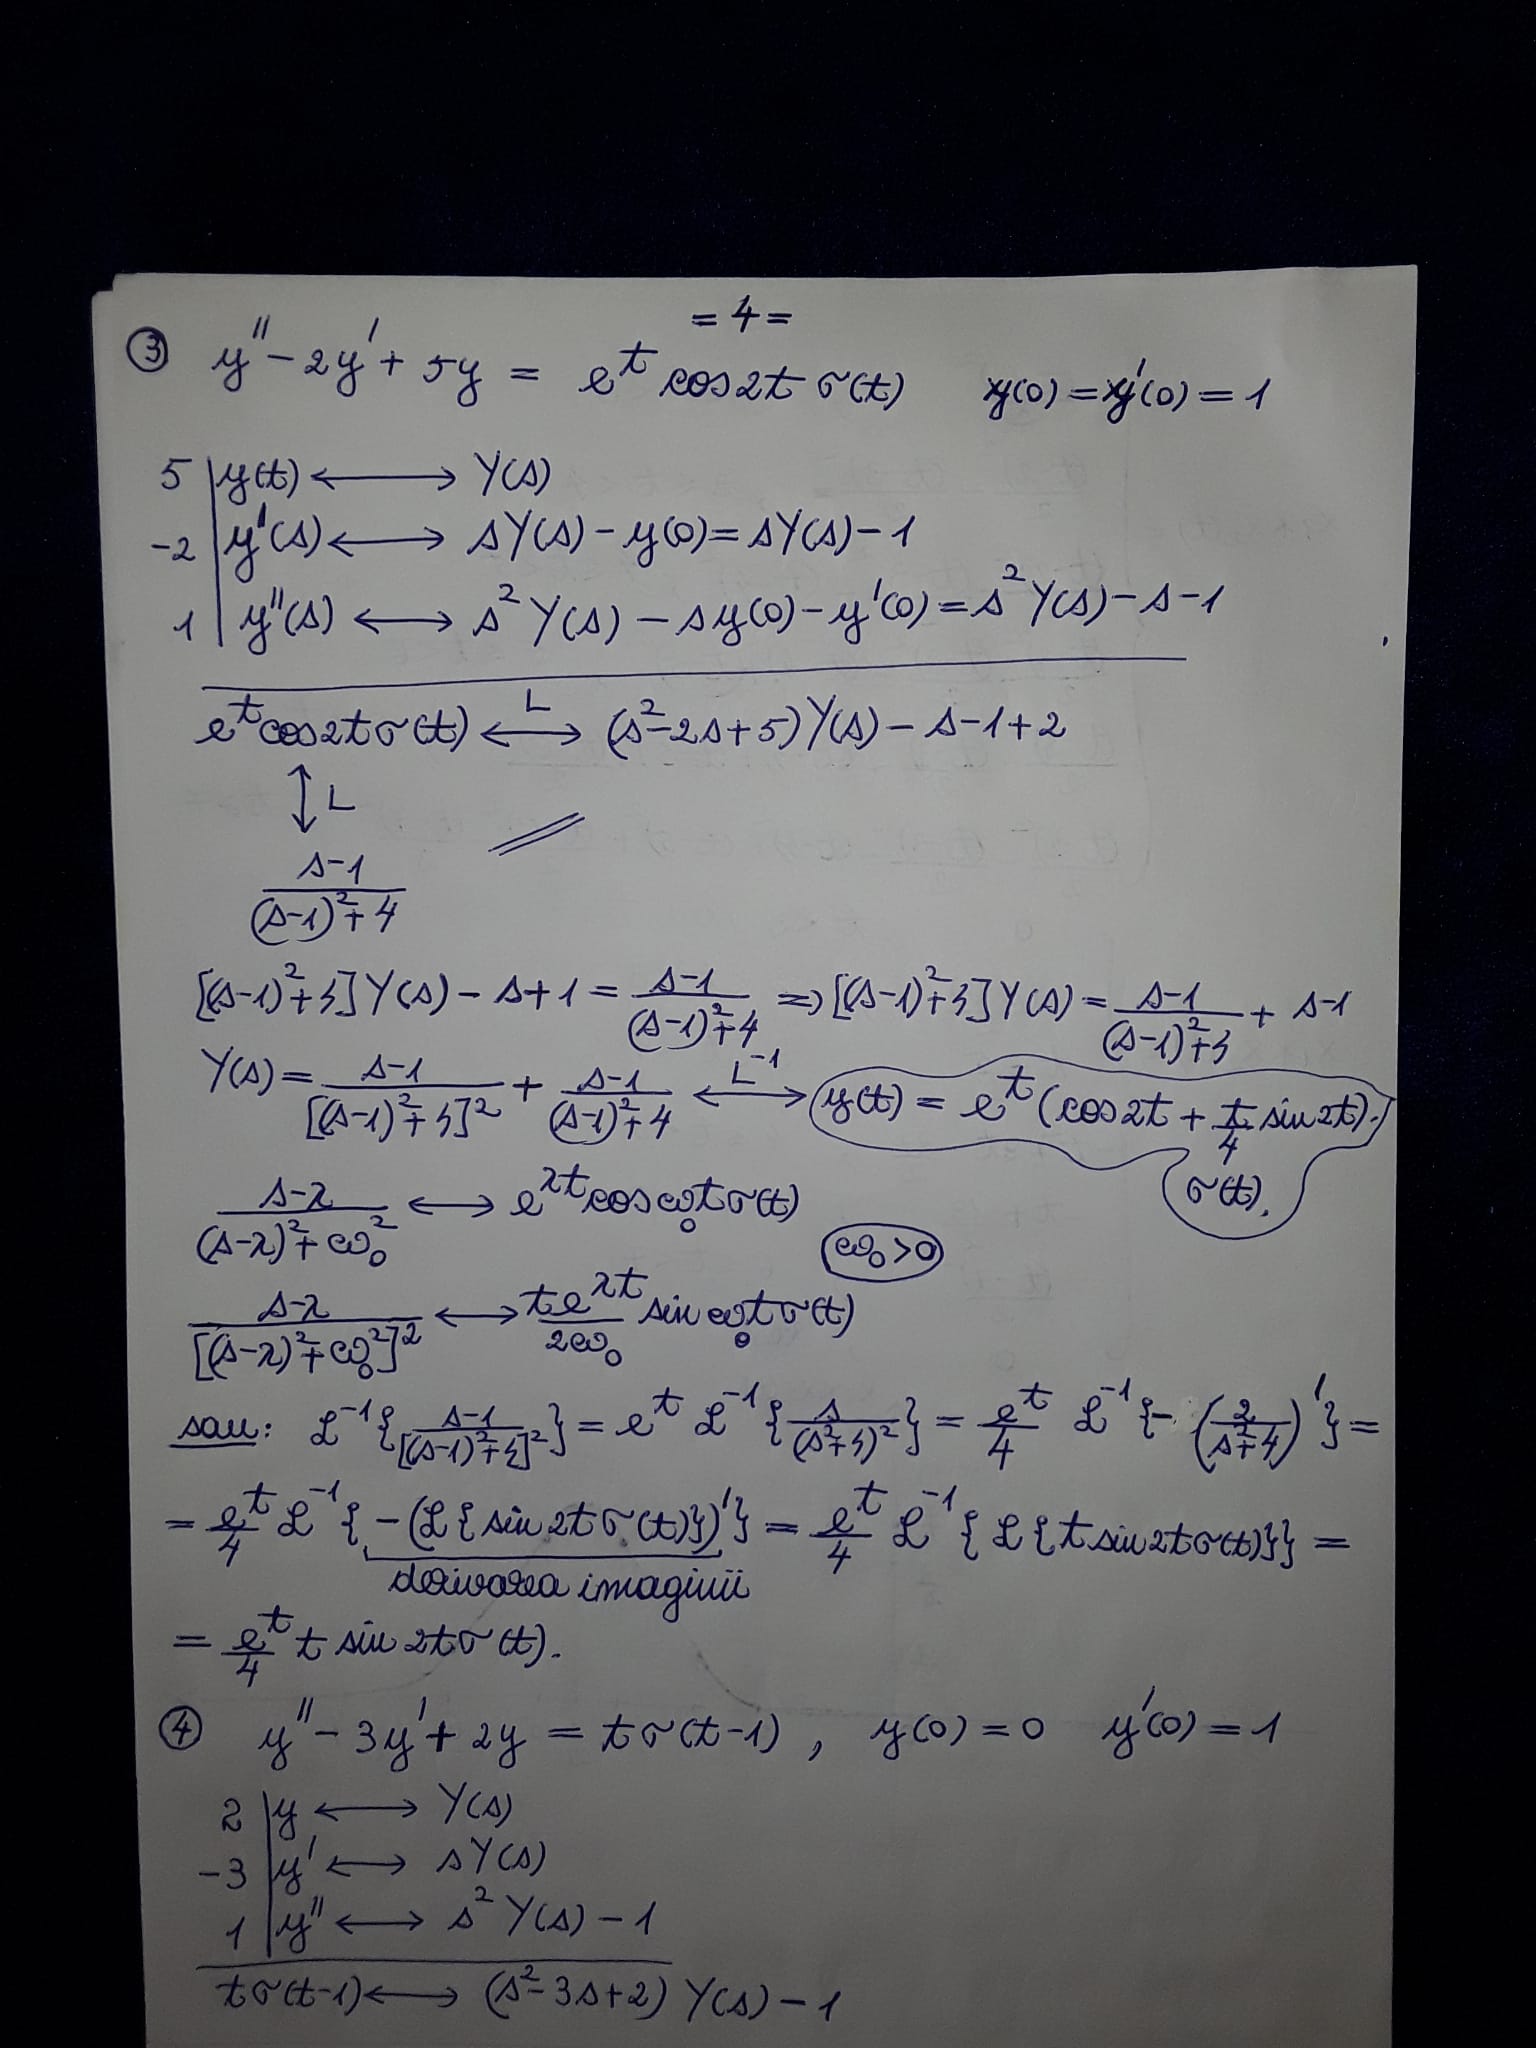 = 4 =
③ y'' - 2y' + 5y = e^t cos2t σ(t) y(0) = y'(0) = 1
5 | y(t) ⟷ Y(s)
-2 | y'(s) ⟷ sY(s) - y(0) = sY(s) - 1
1 | y''(s) ⟷ s² Y(s) - sy(0) - y'(0) = s² Y(s) - s - 1
e^t cos2t σ(t) ⟷^L (s² - 2s + 5) Y(s) - s - 1 + 2
↕ L
(s-1)/((s-1)² + 4)
[(s-1)² + 4] Y(s) - s + 1 = (s-1)/((s-1)² + 4) ⇒ [(s-1)² + 4] Y(s) = (s-1)/((s-1)² + 4) + s-1
Y(s) = (s-1)/[(s-1)² + 4]² + (s-1)/((s-1)² + 4) ⟷^{L^-1} y(t) = e^t (cos2t + t/4 sin2t).
σ(t).
(s-λ)/((s-λ)² + ω₀²) ⟷ e^{λt} cos ω₀t σ(t)
ω₀ > 0
(s-λ)/[(s-λ)² + ω₀²]² ⟷ te^{λt}/2ω₀ sin ω₀t σ(t)
sau: ℒ^-1{(s-1)/[(s-1)² + 4]²} = e^t ℒ^-1{s/(s² + 4)²} = e^t/4 ℒ^-1{-(2/(s² + 4))'} =
= e^t/4 ℒ^-1{-(ℒ{sin 2t σ(t)})'} = e^t/4 ℒ^-1{ℒ{t sin2t σ(t)}} =
derivarea imaginii
= e^t/4 t sin 2t σ(t).
④ y'' - 3y' + 2y = t σ(t-1), y(0) = 0 y'(0) = 1
2 | y ⟷ Y(s)
-3 | y' ⟷ sY(s)
1 | y'' ⟷ s² Y(s) - 1
t σ(t-1) ⟷ (s² - 3s + 2) Y(s) - 1